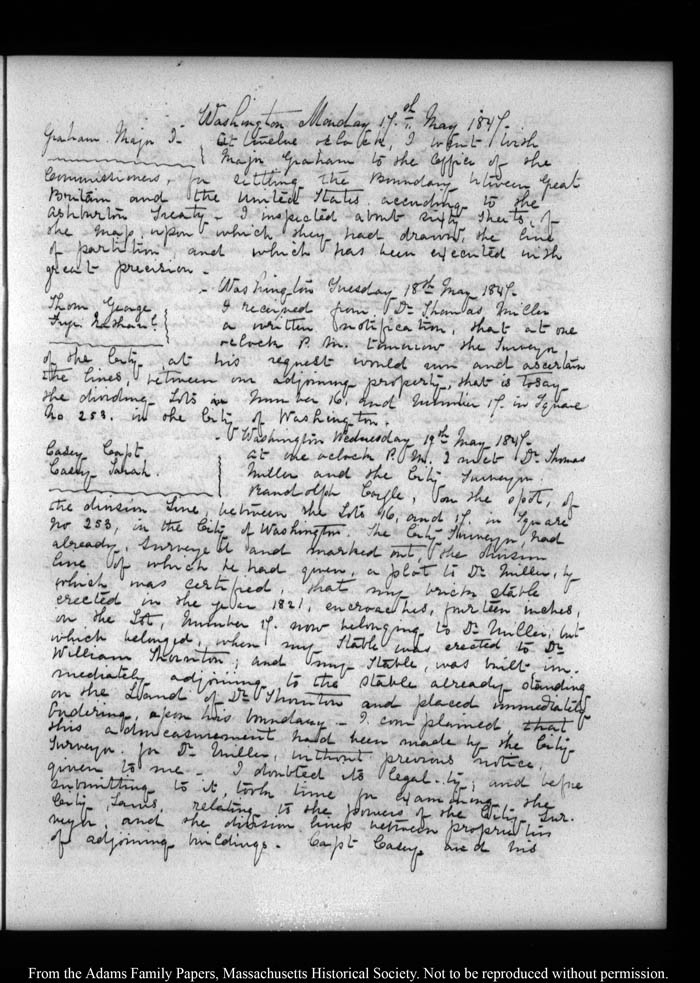 Washington Monday 17th May 1847.
Graham. Major J-
At twelve oclock, I went with
Major Graham to the Office of the
Commissioners, for settling the Boundary between Great
Britain and the United States according to the
Ashburton Treaty- I inspected about sixty sheets, of
the map, upon which they had drawn, the line
of partition, and which has been executed with
great precision-
- Washington Tuesday 18th May 1847-
Thom George
Frye Nathaniel
I received from Dr Thomas Miller
a written notification, that at one
oclock P.M. tomorrow the Surveyor
of the City, at his request would run and ascertain
the lines, between our adjoining property, that is to say
the dividing Lots in Number 16, and Number 17. in Square
No 253. in the City of Washington.
- Washington Wednesday 19th May 1847-
Casey Capt
Casey Sarah.
At one oclock P.M, I met Dr Thomas
Miller and the City Surveyor.
Randolph Coyle, on the spot, of
the division line, between the Lots 16, and 17. in Square
No 253, in the City of Washington. The City Surveyor, had
already, surveyed and marked out, the division
line of which he had given, a plat to Dr Miller, by
which was certified, that my brick stable
erected in the year 1821, encroaches, fourteen inches,
on the Lot, Number 17. now belonging to Dr Miller, but
which belonged, when my stable was erected to Dr
William Thornton; and my stable, was built im-
mediately adjoining to the stable already standing
on the Land of Dr Thornton and placed immediately
bordering, upon his boundary- I complained that
this admeasurement had been made by the City
Surveyor for Dr Miller, without previous notice,
given to me- I doubted its legality; and before
submitting to it, took time for examining the
City Laws, relating to the powers of the City Sur-
veyor, and the division lines between proprietors
of adjoining buildings- Capt Casey and his
From the Adams Family Papers, Massachusetts Historical Society. Not to be reproduced without permission.